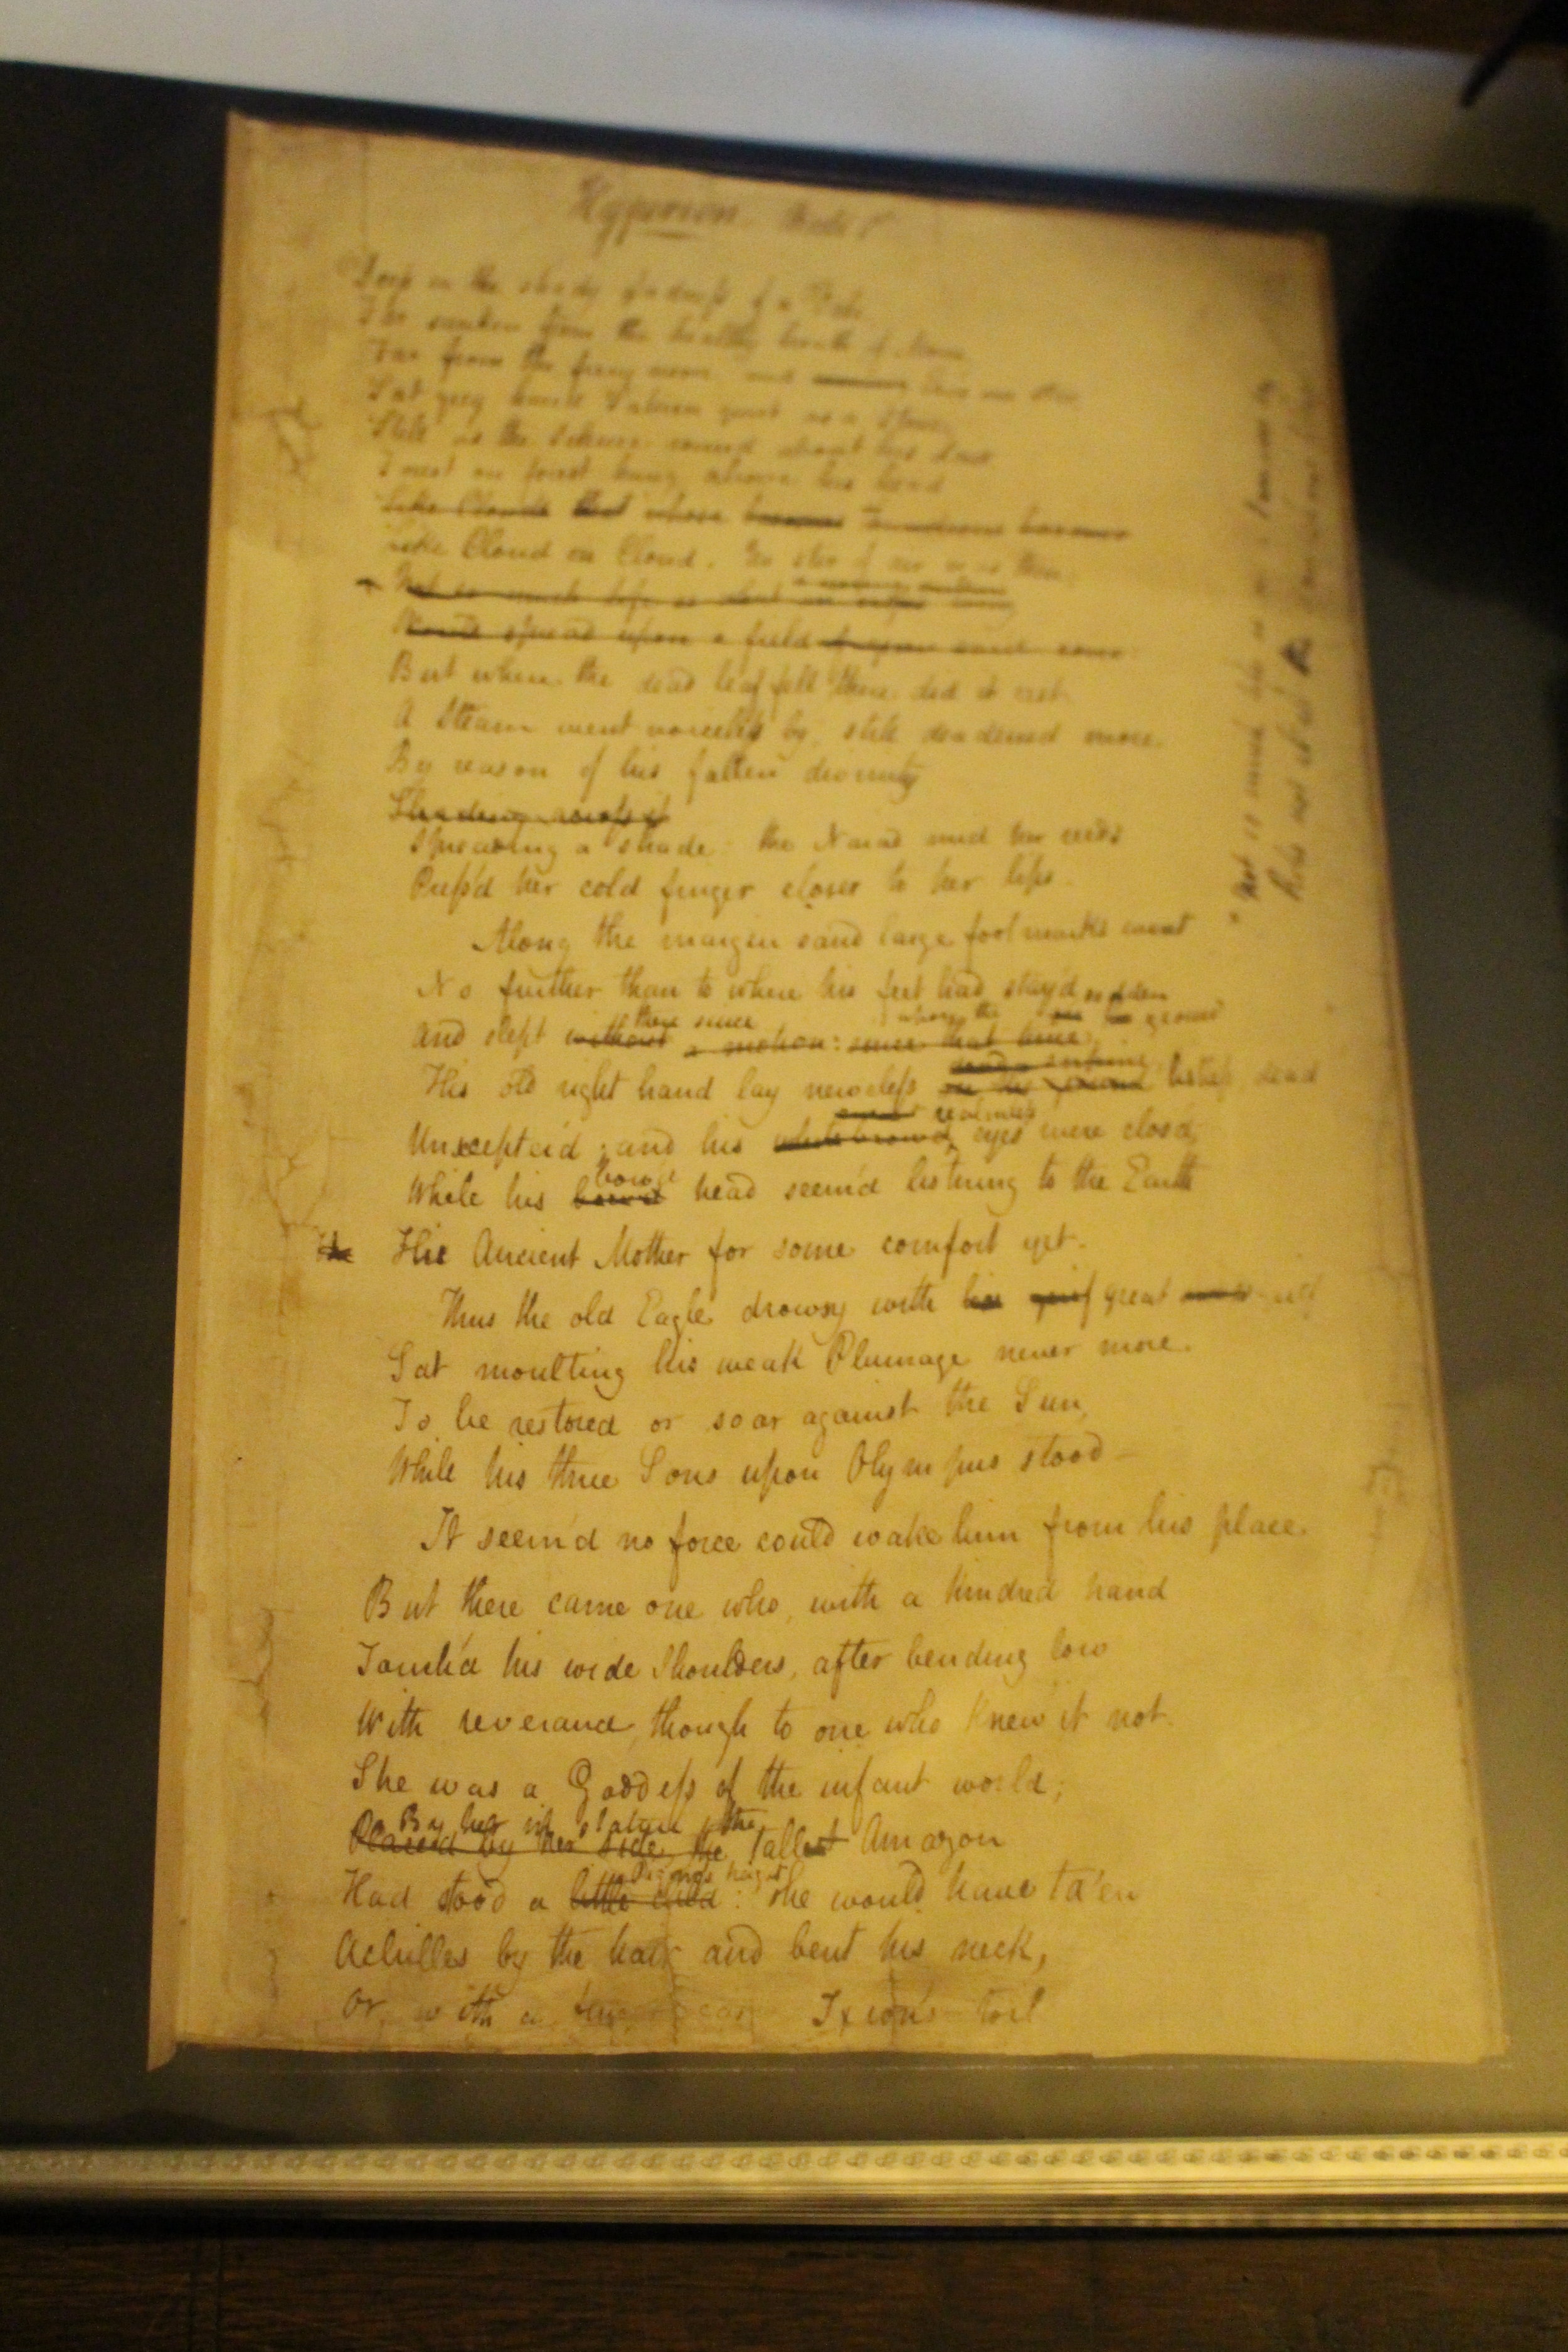 Hyperion Book 1
Deep in the shady sadness of a Vale
Far sunken from the healthy breath of Morn,
Far from the fiery noon and eve's one star
Sat grey hair'd Saturn quiet as a stone
Still as the silence round about his Lair
Forest on forest hung above his head
Like Clouds that whose bosoms
Like Cloud on Cloud. No stir of air was there
Not so much life as what
spread upon a field
But where the dead leaf fell there did it rest.
A Stream went voiceless by, still deadened more
By reason of his fallen divinity
Shading across it
Spreading a shade: the Naiad mid her reeds
Press'd her cold finger closer to her lips.
Along the margin sand large footmarks went
No further than to where his feet had stay'd
there since upon the sodden ground
And slept without a motion: since that time
His old right hand lay nerveless on the ground listless dead
realmless
Unsceptred; and his white brow'd eyes were closd,
bow'd
While his head seem'd listening to the Earth
the His Ancient Mother for some comfort yet.
Thus the old Eagle drowsy with his grief great
Sat moulting his weak Plumage never more
To be restored or soar against the Sun,
While his three Sons upon Olympus stood—
It seem'd no force could wake him from his place
But there came one who, with a kindred hand
Touch'd his wide Shoulders, after bending low
With reverance, though to one who knew it not
She was a Goddess of the infant world;
By her in stature the
Placed by her side, the Tallest Amazon
Pigmy's height
Had stood a little child: she would have ta'en
Achilles by the hair and bent his neck,
Or with a Ixion's toil
Not so much life as